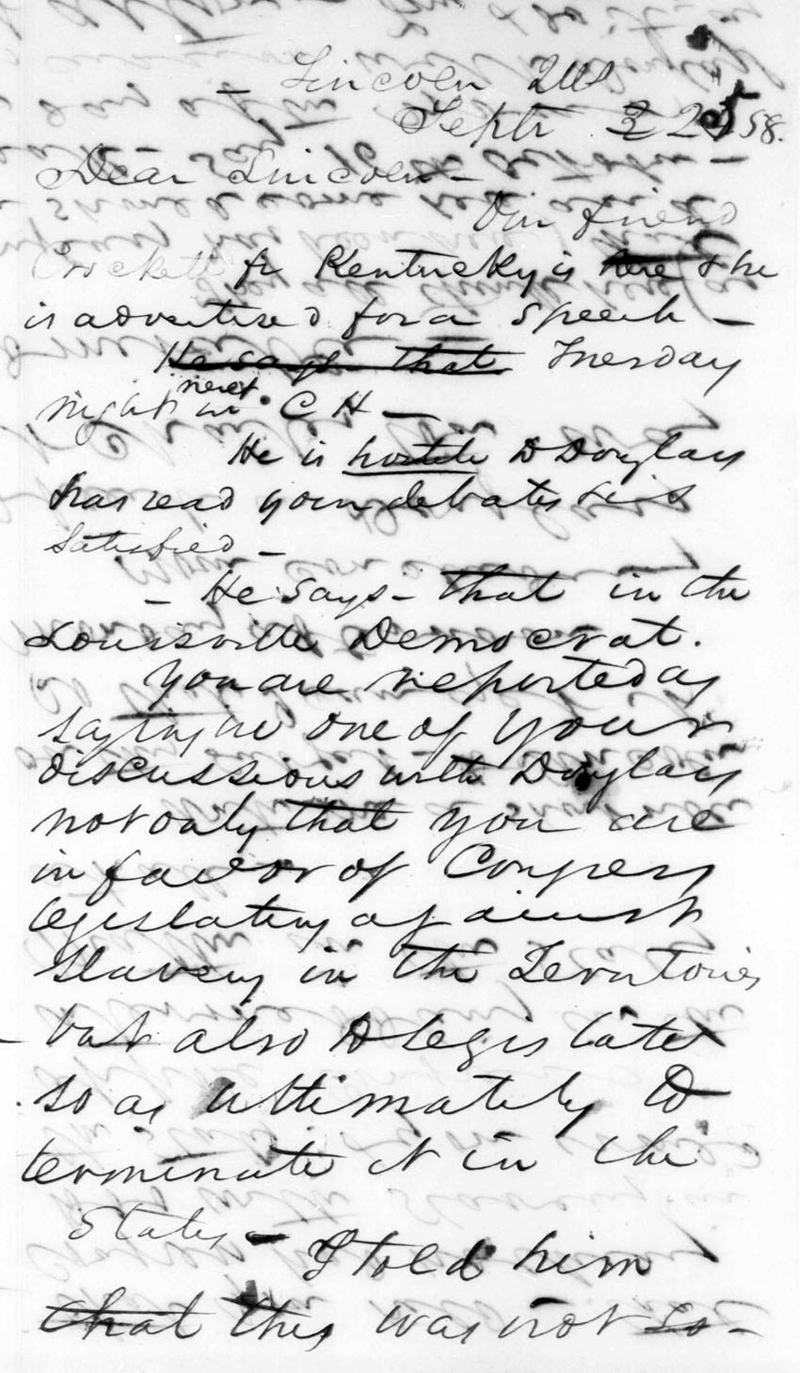 Lincoln Ills
Septr 22 58.
Dear Lincoln—
Our friend
Crockett fr Kentucky is here & he
is advertised for a speech —
He says that Tuesday
night next in C H —
He is hostile to Douglas
has read your debates & is
satisfied —
— He says — that in the
Louisville Democrat.
You are reported as
saying in one of your
discussions with Douglas
not only that you are
in favor of Congress
legislating against
slavery in the Territories
but also to legislate
so as ultimately to
terminate it in the
States — I told him
that this was not so —